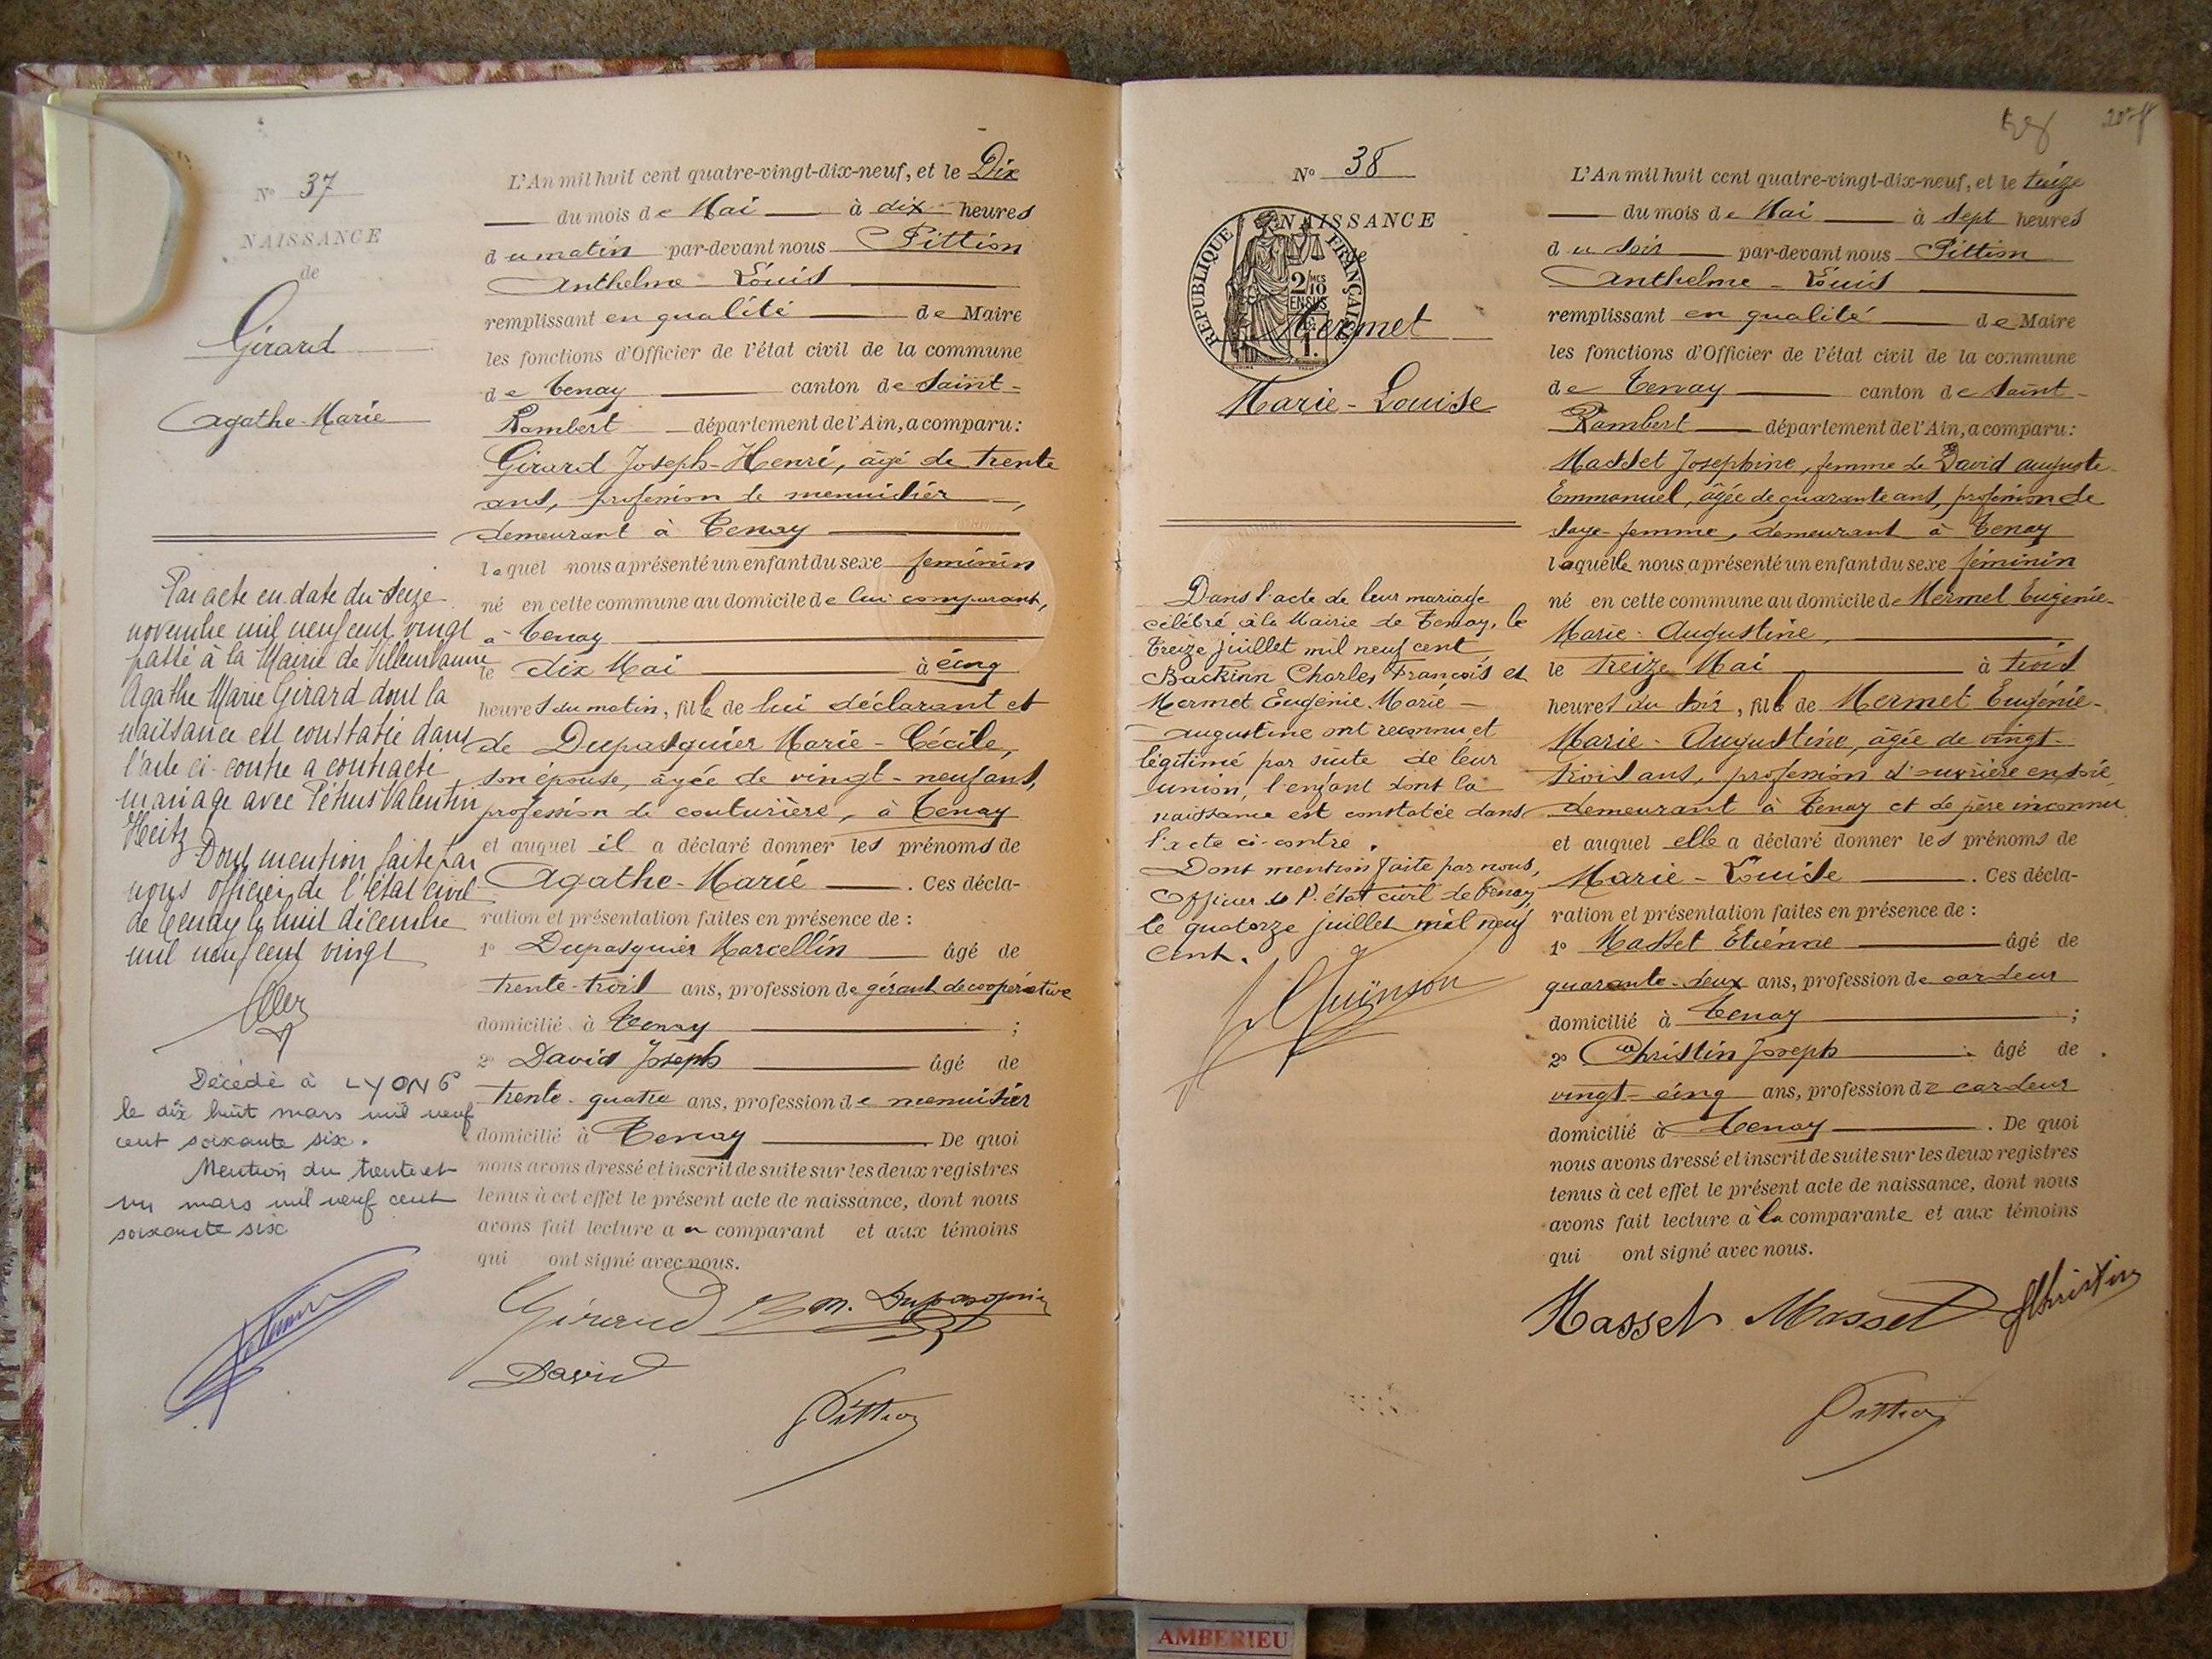 N° 37
NAISSANCE
de
Girard
Agathe-Marie
Par acte en date du seize
novembre mil neuf cent vingt
passé à la Mairie de Villeurbanne
Agathe Marie Girard dont la
naissance est constatée dans
l'acte ci-contre a contracté
mariage avec Pétrus Valentin
Heitz
Dont mention faite par
nous officier de l'état civil
de Tenay le huit décembre
mil neuf cent vingt
Décédé à LYON 6e
le dix huit mars mil neuf
cent soixante six.
Mention du trente et
un mars mil neuf cent
soixante six
L'An mil huit cent quatre-vingt-dix-neuf, et le Dix
du mois de Mai à dix heures
du matin par-devant nous Pittion
Anthelme-Louis
remplissant en qualité de Maire
les fonctions d'Officier de l'état civil de la commune
de Tenay canton de Saint-
Rambert département de l'Ain, a comparu:
Girard Joseph-Henri, âgé de trente
ans, profession de menuisier,
demeurant à Tenay
lequel nous a présenté un enfant du sexe féminin
né en cette commune au domicile de lui comparant,
à Tenay
le dix Mai à cinq
heures du matin, fille de lui déclarant et
de Dupasquier Marie-Cécile,
son épouse, âgée de vingt-neuf ans,
profession de couturière, à Tenay
et auquel il a déclaré donner les prénoms de
Agathe-Marie. Ces décla-
ration et présentation faites en présence de :
1° Dupasquier Marcellin âgé de
trente-trois ans, profession de gérant de coopérative
domicilié à Tenay ;
2° David Joseph âgé de
trente-quatre ans, profession de menuisier
domicilié à Tenay. De quoi
nous avons dressé et inscrit de suite sur les deux registres
tenus à cet effet le présent acte de naissance, dont nous
avons fait lecture au comparant et aux témoins
qui ont signé avec nous.
Girard M. Dupasquier
David
Pittion
N° 38
NAISSANCE
de
REPUBLIQUE FRANÇAISE
2/10 EN SUS
1F.
Mermet
Marie-Louise
Dans l'acte de leur mariage
célébré à la Mairie de Tenay, le
treize juillet mil neuf cent
Backinn Charles François et
Mermet Eugénie Marie-
Augustine ont reconnu et
légitimé par suite de leur
union, l'enfant dont la
naissance est constatée dans
l'acte ci-contre.
Dont mention faite par nous,
Officier de l'état civil de Tenay,
le quatorze juillet mil neuf
cent.
L'An mil huit cent quatre-vingt-dix-neuf, et le treize
du mois de Mai à sept heures
du soir par-devant nous Pittion
Anthelme-Louis
remplissant en qualité de Maire
les fonctions d'Officier de l'état civil de la commune
de Tenay canton de Saint-
Rambert département de l'Ain, a comparu:
Masset Josephine, femme de David Auguste-
Emmanuel, âgée de quarante ans, profession de
sage-femme, demeurant à Tenay
laquelle nous a présenté un enfant du sexe féminin
né en cette commune au domicile de Mermet Eugénie-
Marie-Augustine,
le treize Mai à trois
heures du soir, fille de Mermet Eugénie-
Marie-Augustine, âgée de vingt-
trois ans, profession d'ouvrière en soie
demeurant à Tenay et de père inconnu
et auquel elle a déclaré donner les prénoms de
Marie-Louise. Ces décla-
ration et présentation faites en présence de :
1° Masset Etienne âgé de
quarante-deux ans, profession de cardeur
domicilié à Tenay ;
2° Christin Joseph âgé de
vingt-cinq ans, profession de cardeur
domicilié à Tenay. De quoi
nous avons dressé et inscrit de suite sur les deux registres
tenus à cet effet le présent acte de naissance, dont nous
avons fait lecture à la comparante et aux témoins
qui ont signé avec nous.
Masset Masset Christin
Pittion
AMBERIEU